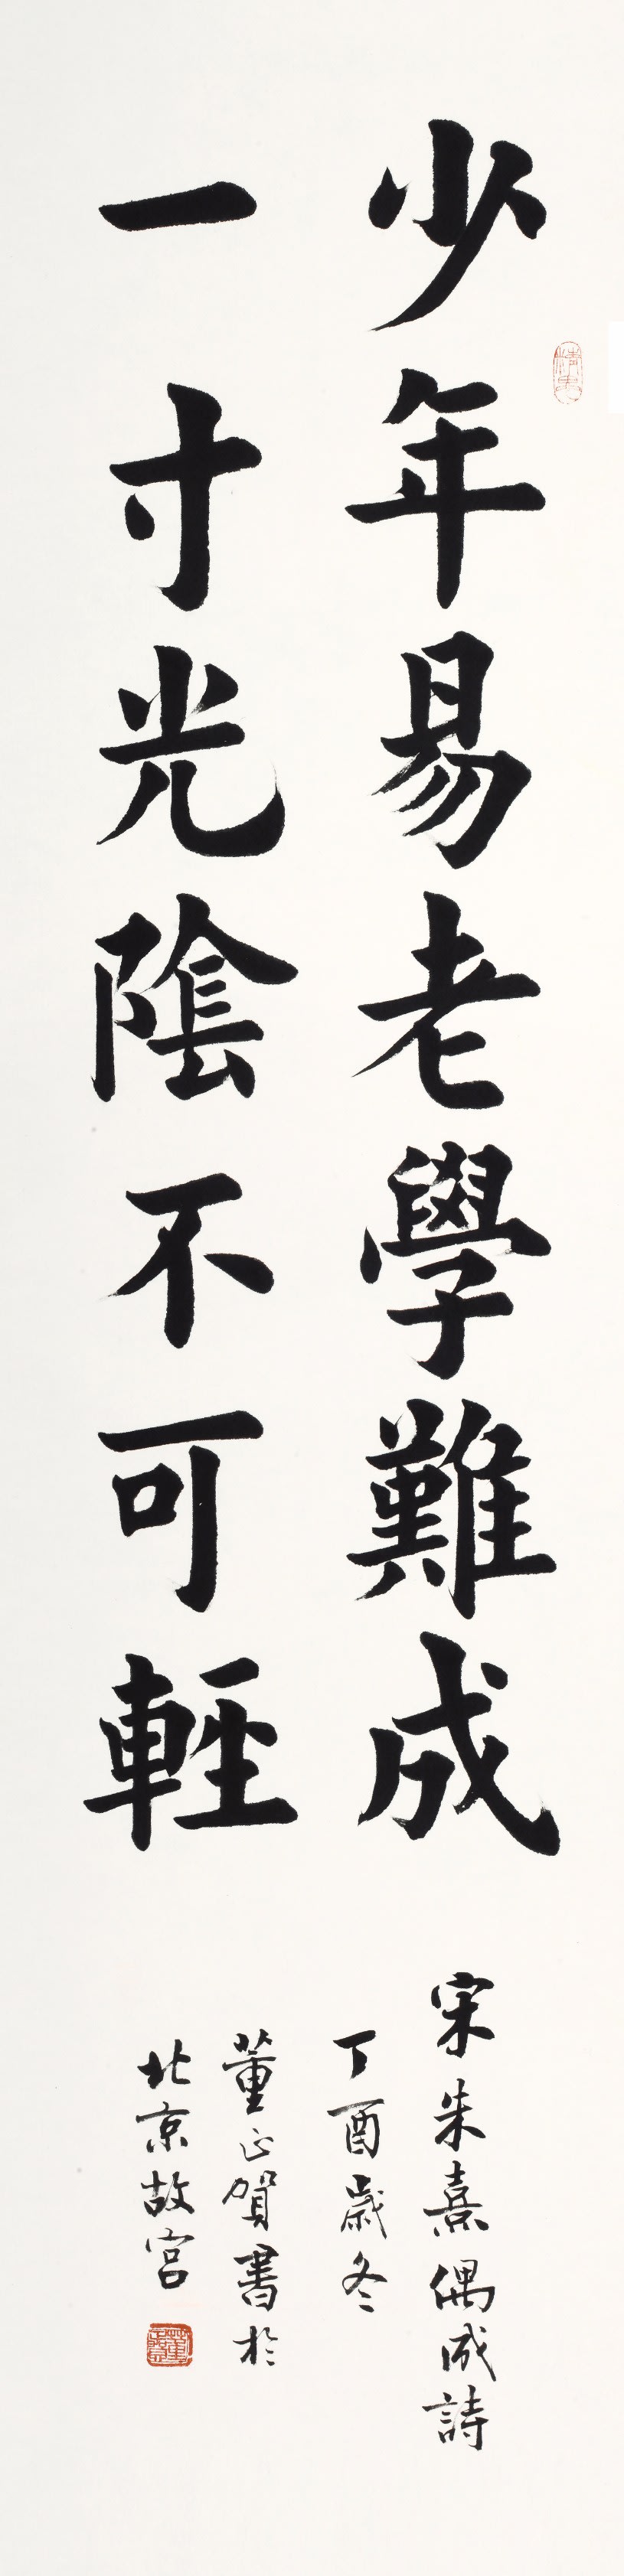 少年易老學難成
一寸光陰不可輕
宋朱熹偶成詩
丁酉歲冬
董正賀書於
北京故宮